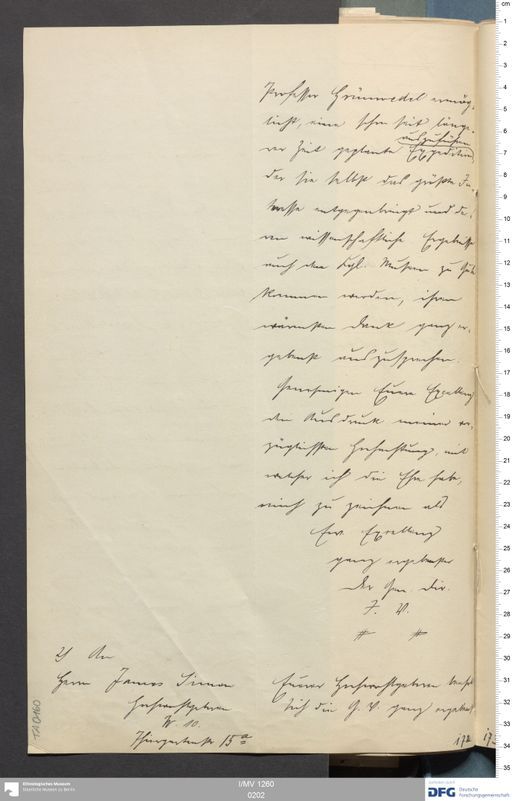 Professor Grünwedel ermög-
licht, eine schon seit länge-
rer Zeit geplante Expedition
auszuführen
der sie selbst das größte In-
teresse entgegenbringt und de-
ren wissenschaftliche Ergebnisse
auch den Kgl. Museen zu Gute
kommen werden, ihren
wärmsten Dank ganz er-
gebenst auszusprechen.
Genehmigen Euere Excellenz
den Ausdruck meiner vor-
züglichsten Hochachtung, mit
welcher ich die Ehre habe,
mich zu zeichnen als
Ew. Excellenz
ganz ergebenster
Der Gen. Dir.
2) An
Herrn James Simon
Hochwohlgeboren
W. 10.
15a
Euerer Hochwohlgeboren
die G. V. ganz ergebenst
172
TA 0160
Ethnologisches Museum
Staatliche Museen zu Berlin
I/MV 1260
0202
DFG Deutsche
Forschungsgemeinschaft
cm
1
2
3
4
5
6
7
8
9
10
11
12
13
14
15
16
17
18
19
20
21
22
23
24
25
26
27
28
29
30
31
32
33
34
35